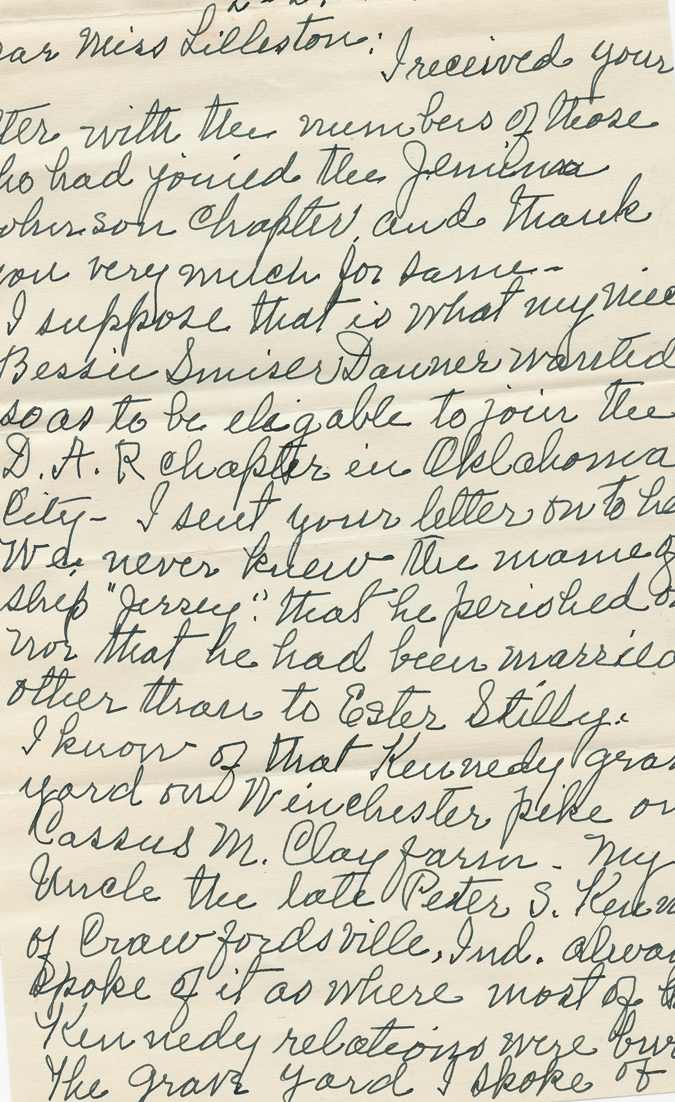 ear Miss Lilleston:
I received your
tter with the numbers of those
ho had joined the Jemima
ohnson Chapter, and thank
you very much for same -
I suppose that is what my niec
Bessie Smiser Dawner wanted
so as to be eligable to join the
D. A. R chapter in Oklahoma
City - I sent your letter on to he
We never knew the name of
ship "Jersey" that he perished o
nor that he had been married
other than to Ester Stilly.
I know of that Kennedy grav
yard on Winchester pike on
Cassus M. Clay farm - My
Uncle the late Peter S. Kenn
of Crawfordsville, Ind. alway
spoke of it as where most of
Kennedy relations were bur
The grave yard I spoke of